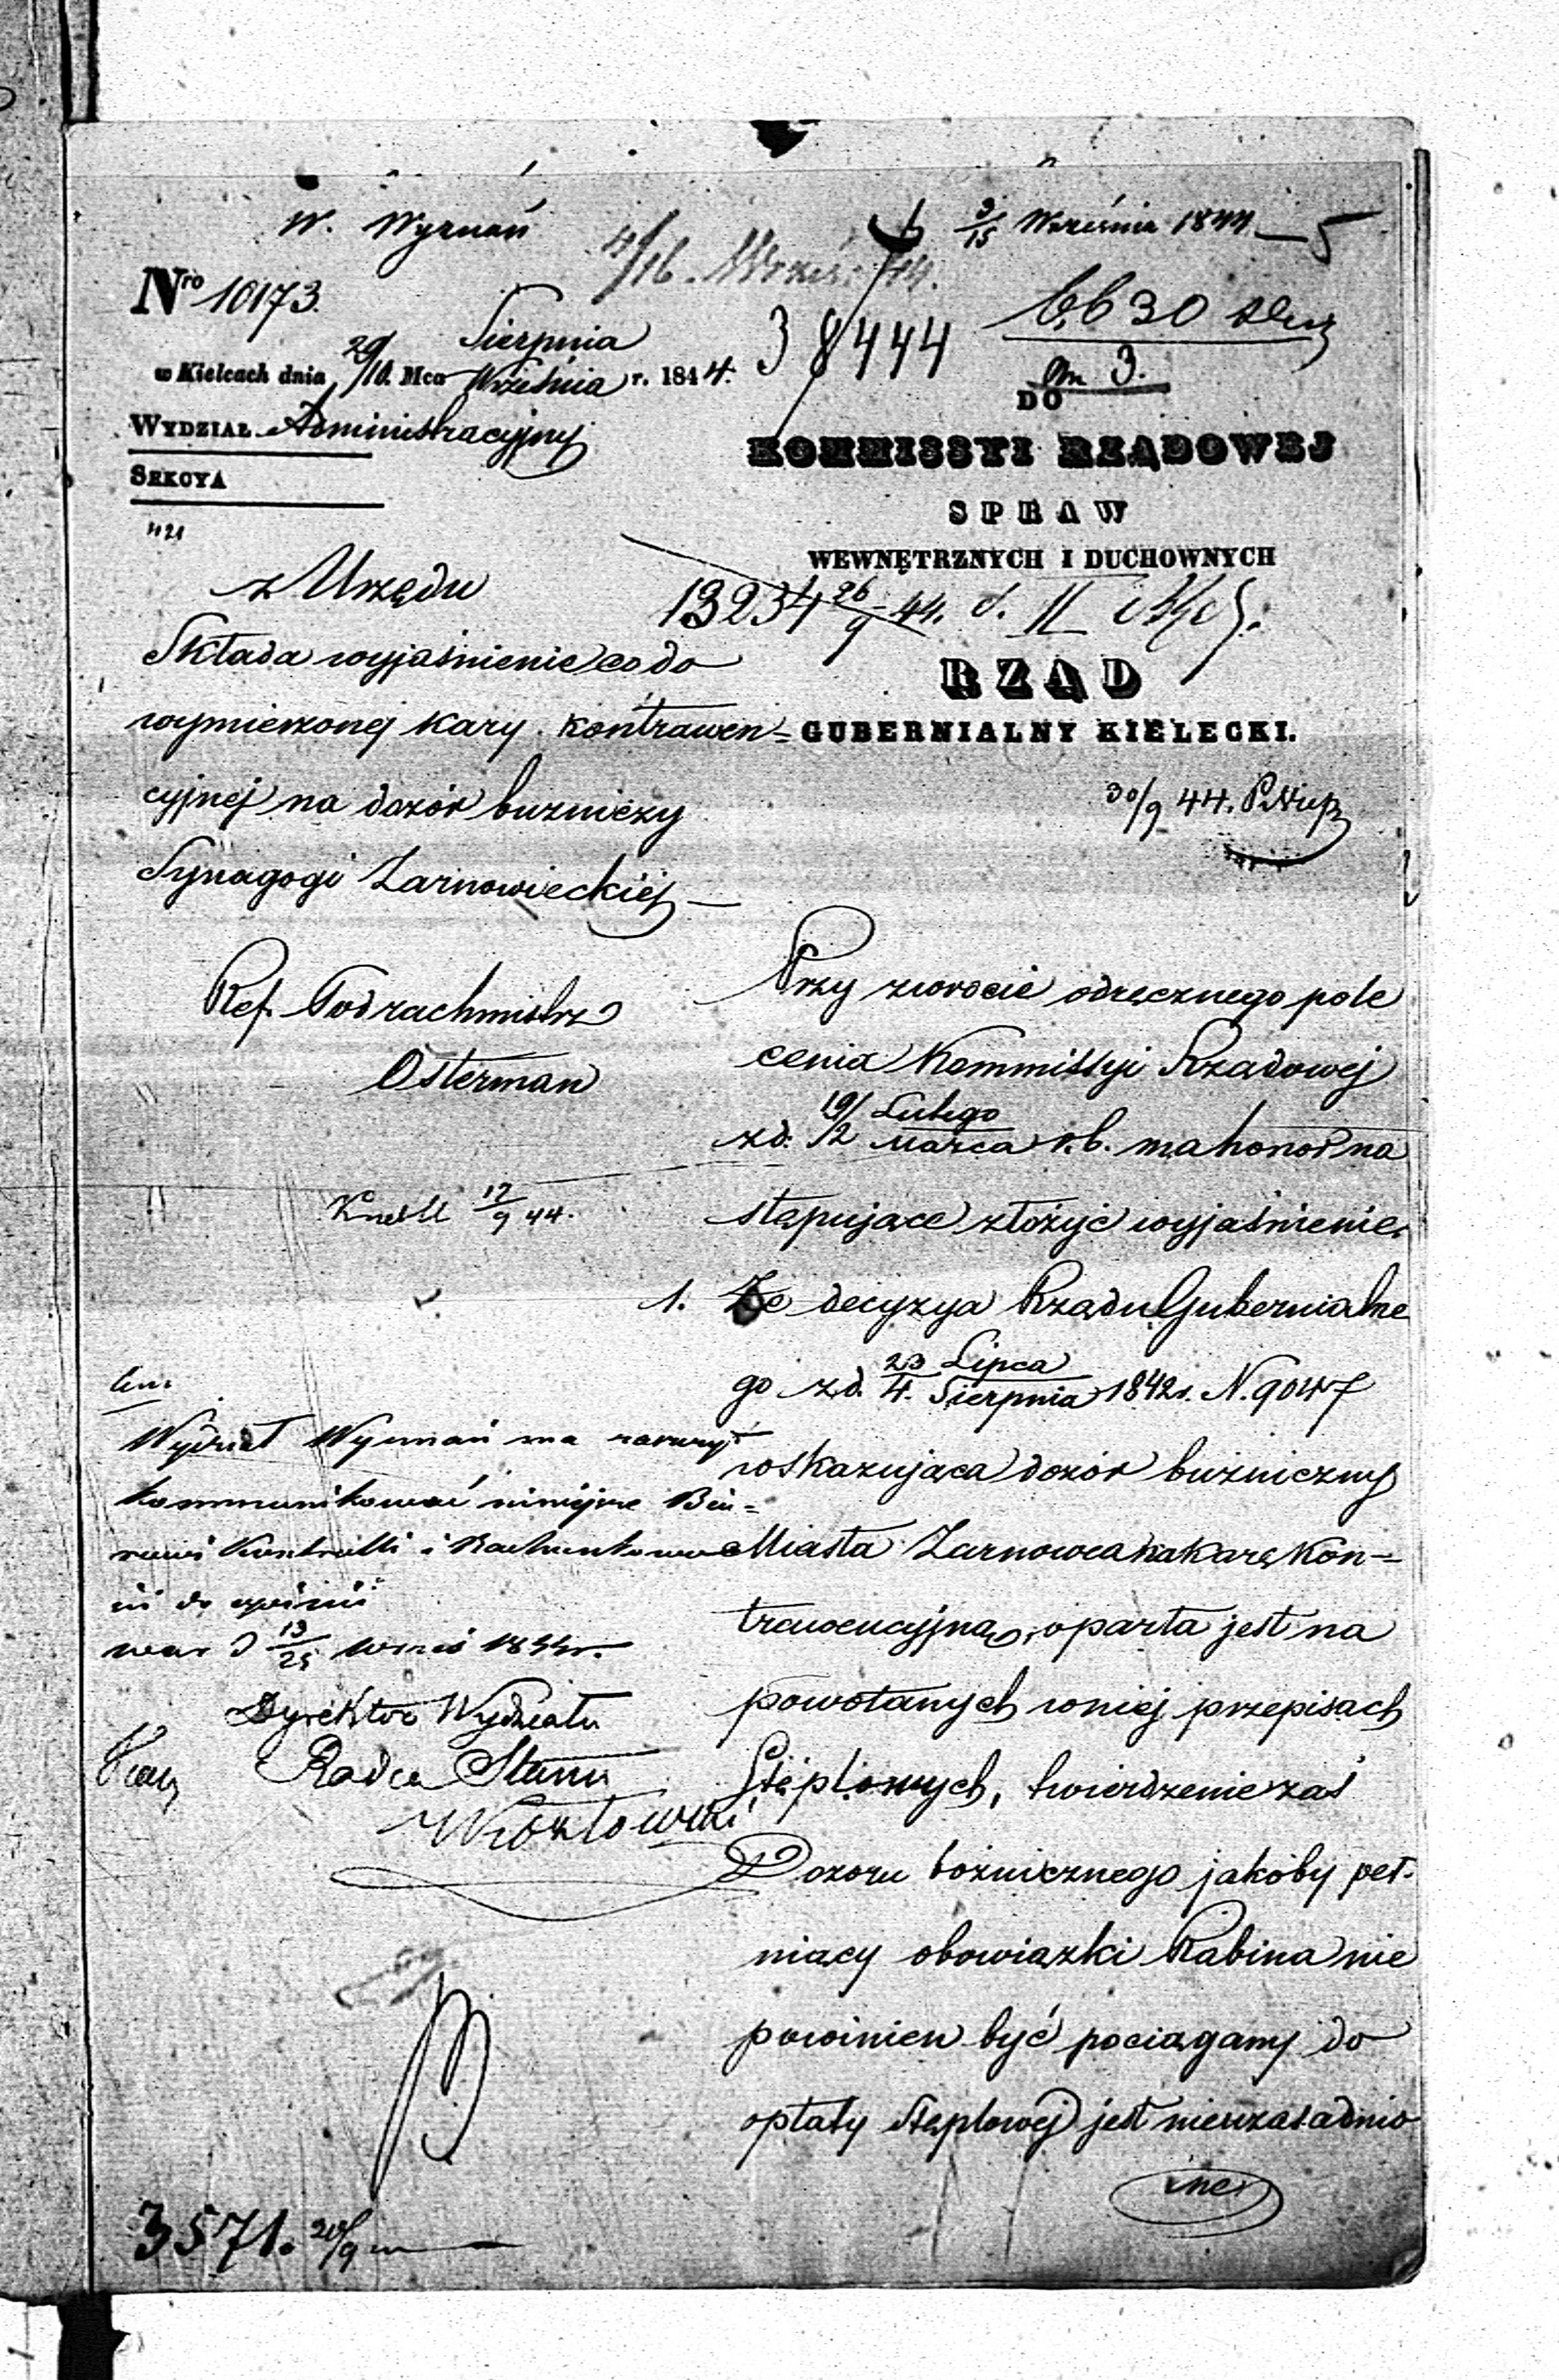 W. Wyznań
3/15 Września 1844 5
4/16 Wrześ. 44.
Nro 10173.
38444
6630
3.
Sierpnia
w Kielcach dnia 29/10. Mca Września r. 1844.
WYDZIAŁ Administracyjny
SEKCYA
DO
KOMMISSYI RZĄDOWEJ
SPRAW
WEWNĘTRZNYCH I DUCHOWNYCH
13234 26/9 44. d. II
RZĄD
GUBERNIALNY KIELECKI.
30/9 44.
z Urzędu
Składa wyjaśnienie co do
wymierzonej kary kontrawen=
cyjnej na dozór buzniczy
Synagogi Zarnowieckiéj
Ref. Podrachmistrz
Osterman
12/9 44.
Przy zwrocie odręcznego pole
cenia Kommissyi Rządowej
zd. 19/2 Lutego/Marca r.b. ma honor na
stępujące złożyć wyjaśnienie.
1. Że decyzya Rządu Gubernialne
go z d. 23 Lipca/4. Sierpnia 1842 r. N. 9047
wskazująca dozór bużniczny
Miasta Zarnowca na karę kon=
trawencyjną, oparta jest na
powołanych w niej przepisach
Stęplowych, twierdzenie zaś
Dozoru bóżnicznego jakoby peł-
niący obowiązki Rabina nie
powinien być pociągany do
opłaty stęplowej jest nieuzasadnio
ne
Wydział Wyznań ma zaraz
kommunikować niniejsze Biu=
rowi Kontrolli i Rachunkowo
ści do opinii
war d 13/25 Wrześ 1844 r.
Dyrektor Wydziału
Radca Stanu
3571. 20/9